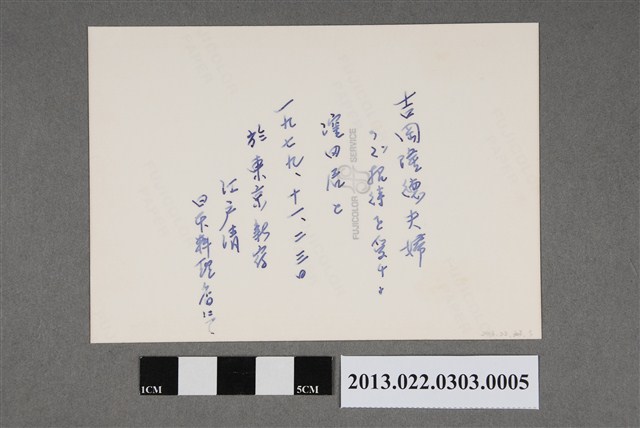 吉岡隆德夫婦
のご招待を受け、
濱田君と
一九七九、十一、二三日
於東京新宿
江戸清
日本料理店にて
FUJICOLOR SERVICE
1CM
5CM
2013.022.0303.0005